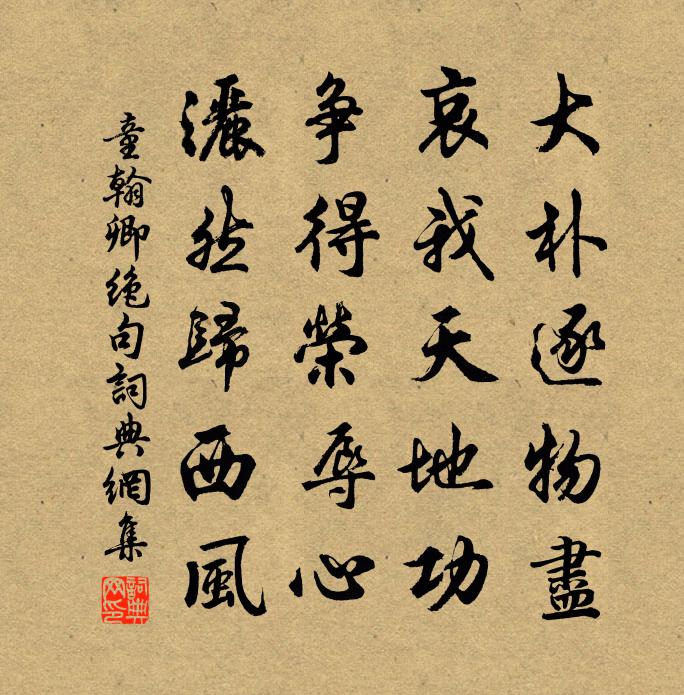 大朴逐物盡
哀我天地功
争得榮辱心
灑然歸西風
童翰卿绝句詞典網集
詞典网印